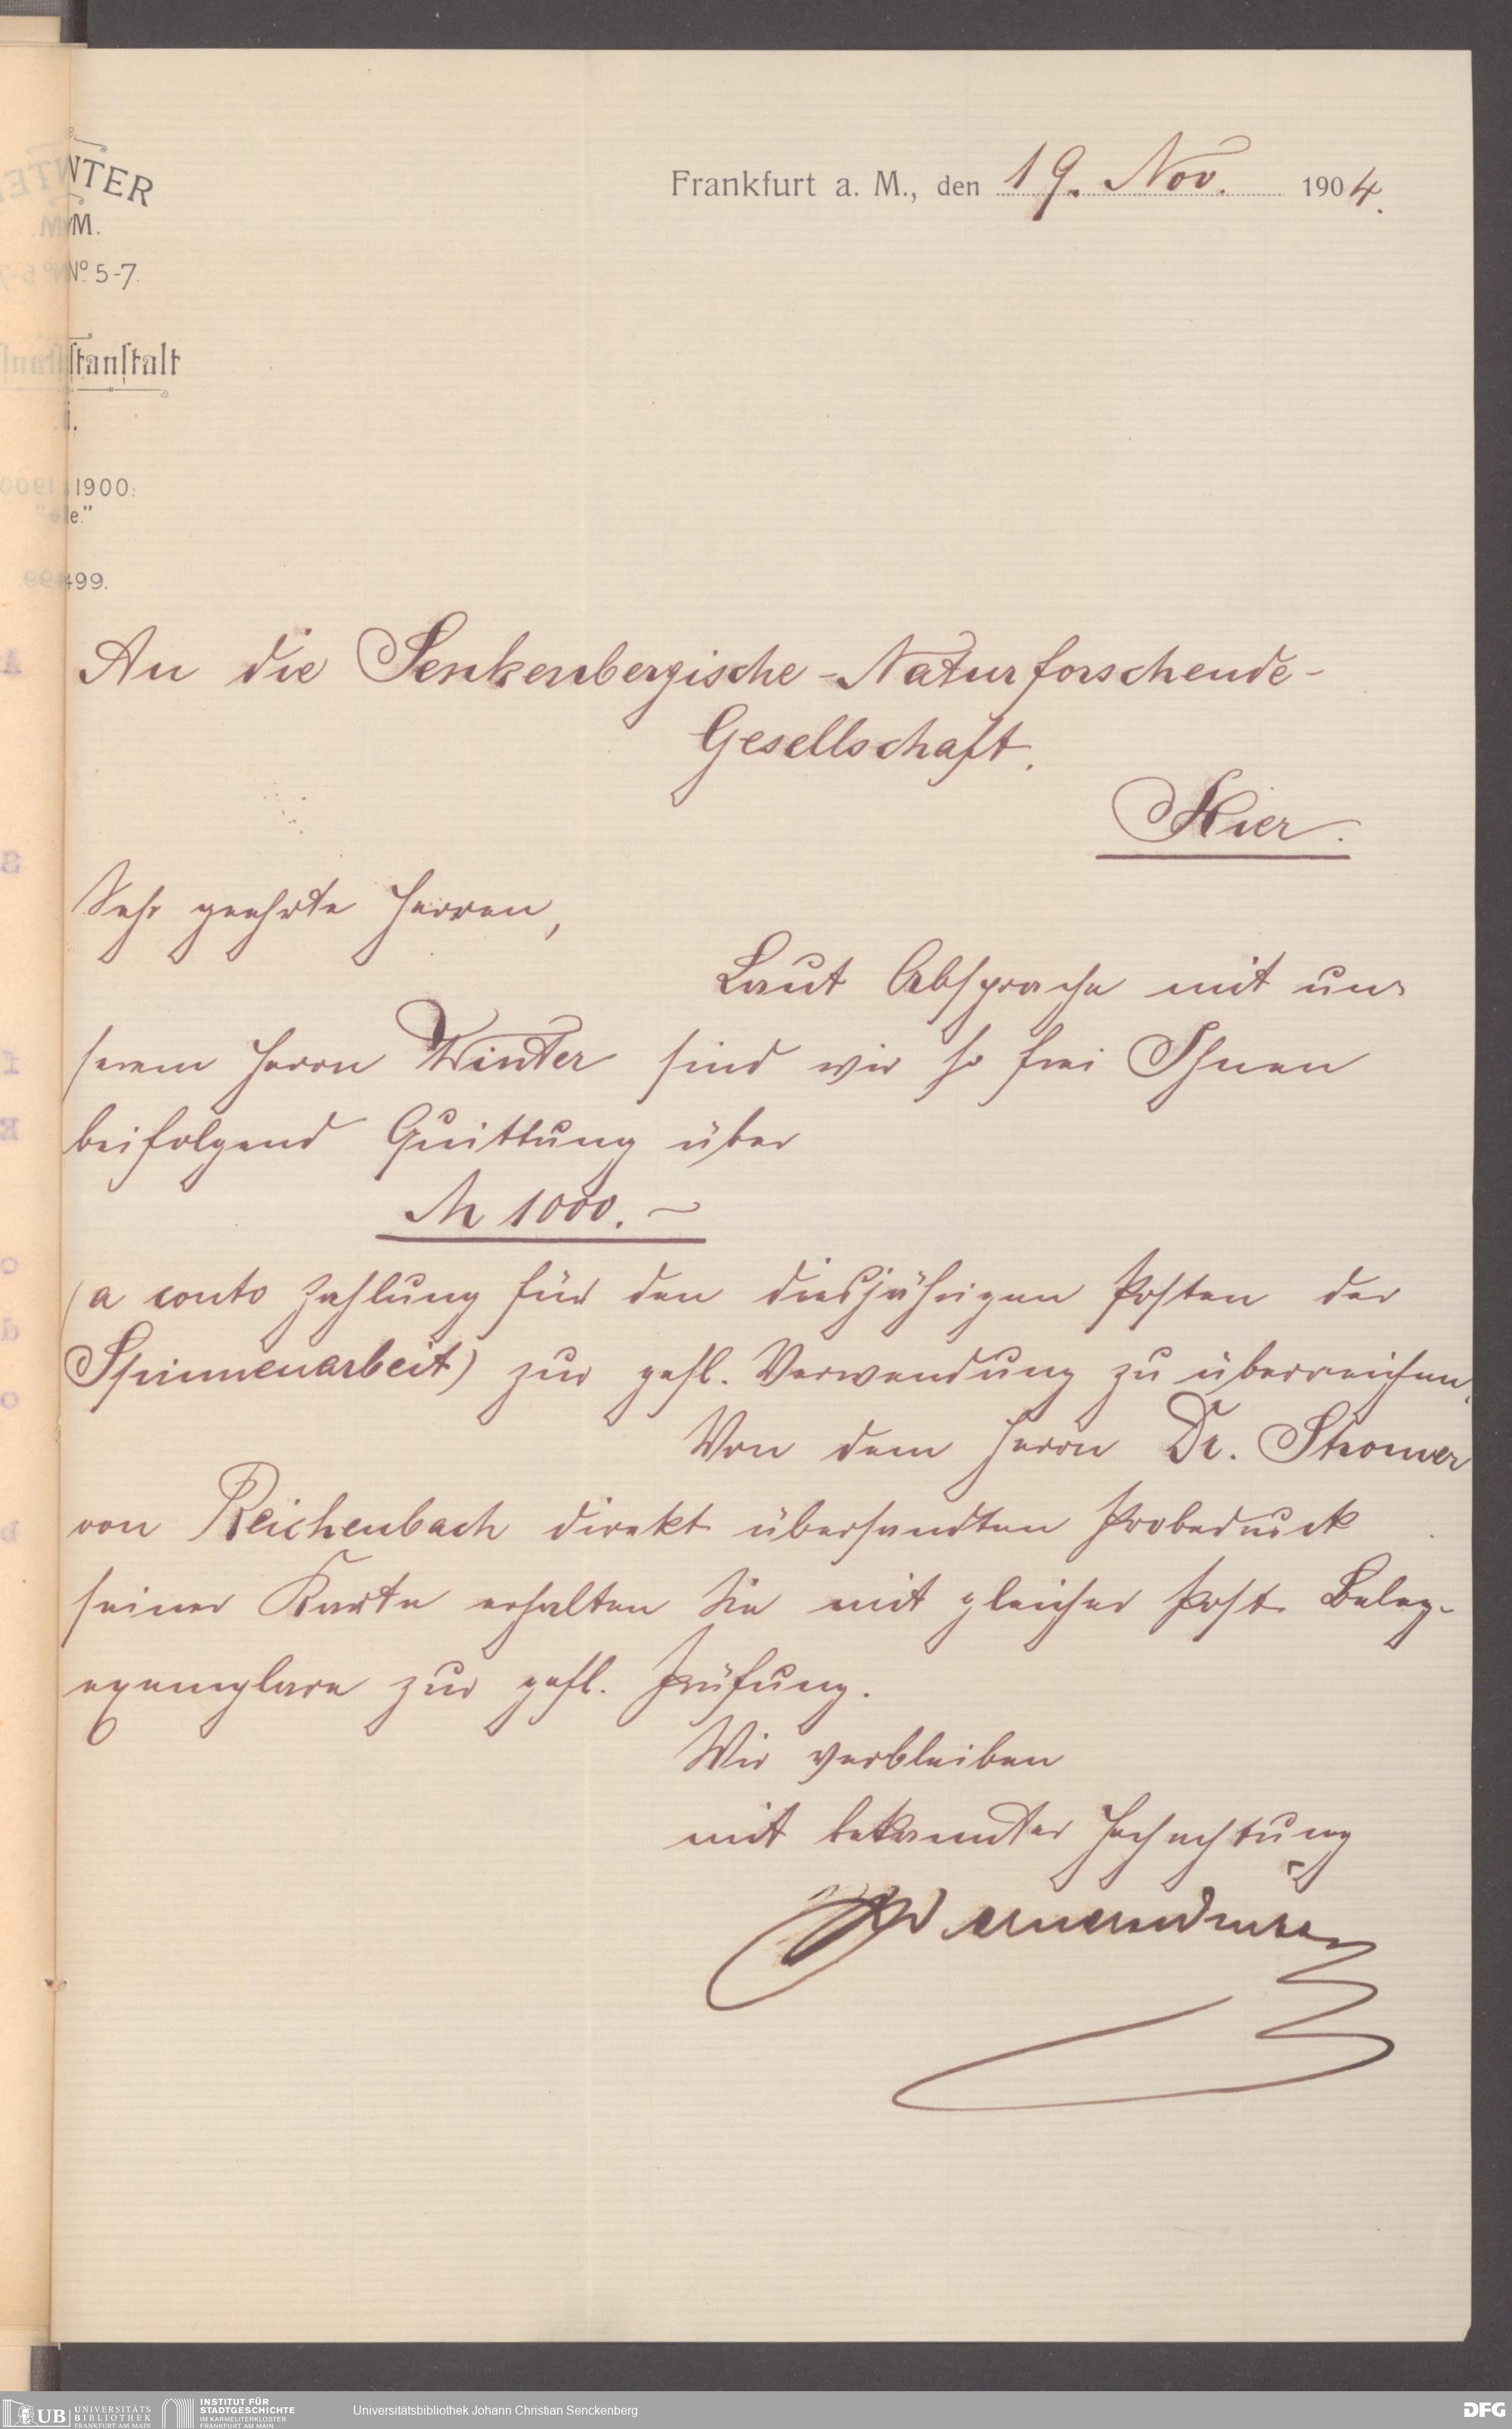 NTER
M.
No. 5-7.
ſtanſtalt
1900:
e."
499.
Frankfurt a. M., den 19. Nov. 1904.
An die Senkenbergische-Naturforschende-
Gesellschaft.
Hier.
Sehr geehrte Herren,
Laut Absprache mit un-
serem Herrn Winter sind wir so frei Ihnen
beifolgend Quittung über
M 1000.–
(a conto Zahlung für den diesjährigen Posten der
Spinnenarbeit) zur gefl. Verwendung zu überreichen.
Von dem Herrn Dr. Stromer
von Reichenbach direkt übersandten Probedruck
seiner Karte erhalten Sie mit gleicher Post Beleg-
exemplare zur gefl. Prüfung.
Wir verbleiben
mit bekannter Hochachtung
UB UNIVERSITÄTS
BIBLIOTHEK
FRANKFURT AM MAIN
INSTITUT FÜR
STADTGESCHICHTE
IM KARMELITERKLOSTER
FRANKFURT AM MAIN
Universitätsbibliothek Johann Christian Senckenberg
DFG